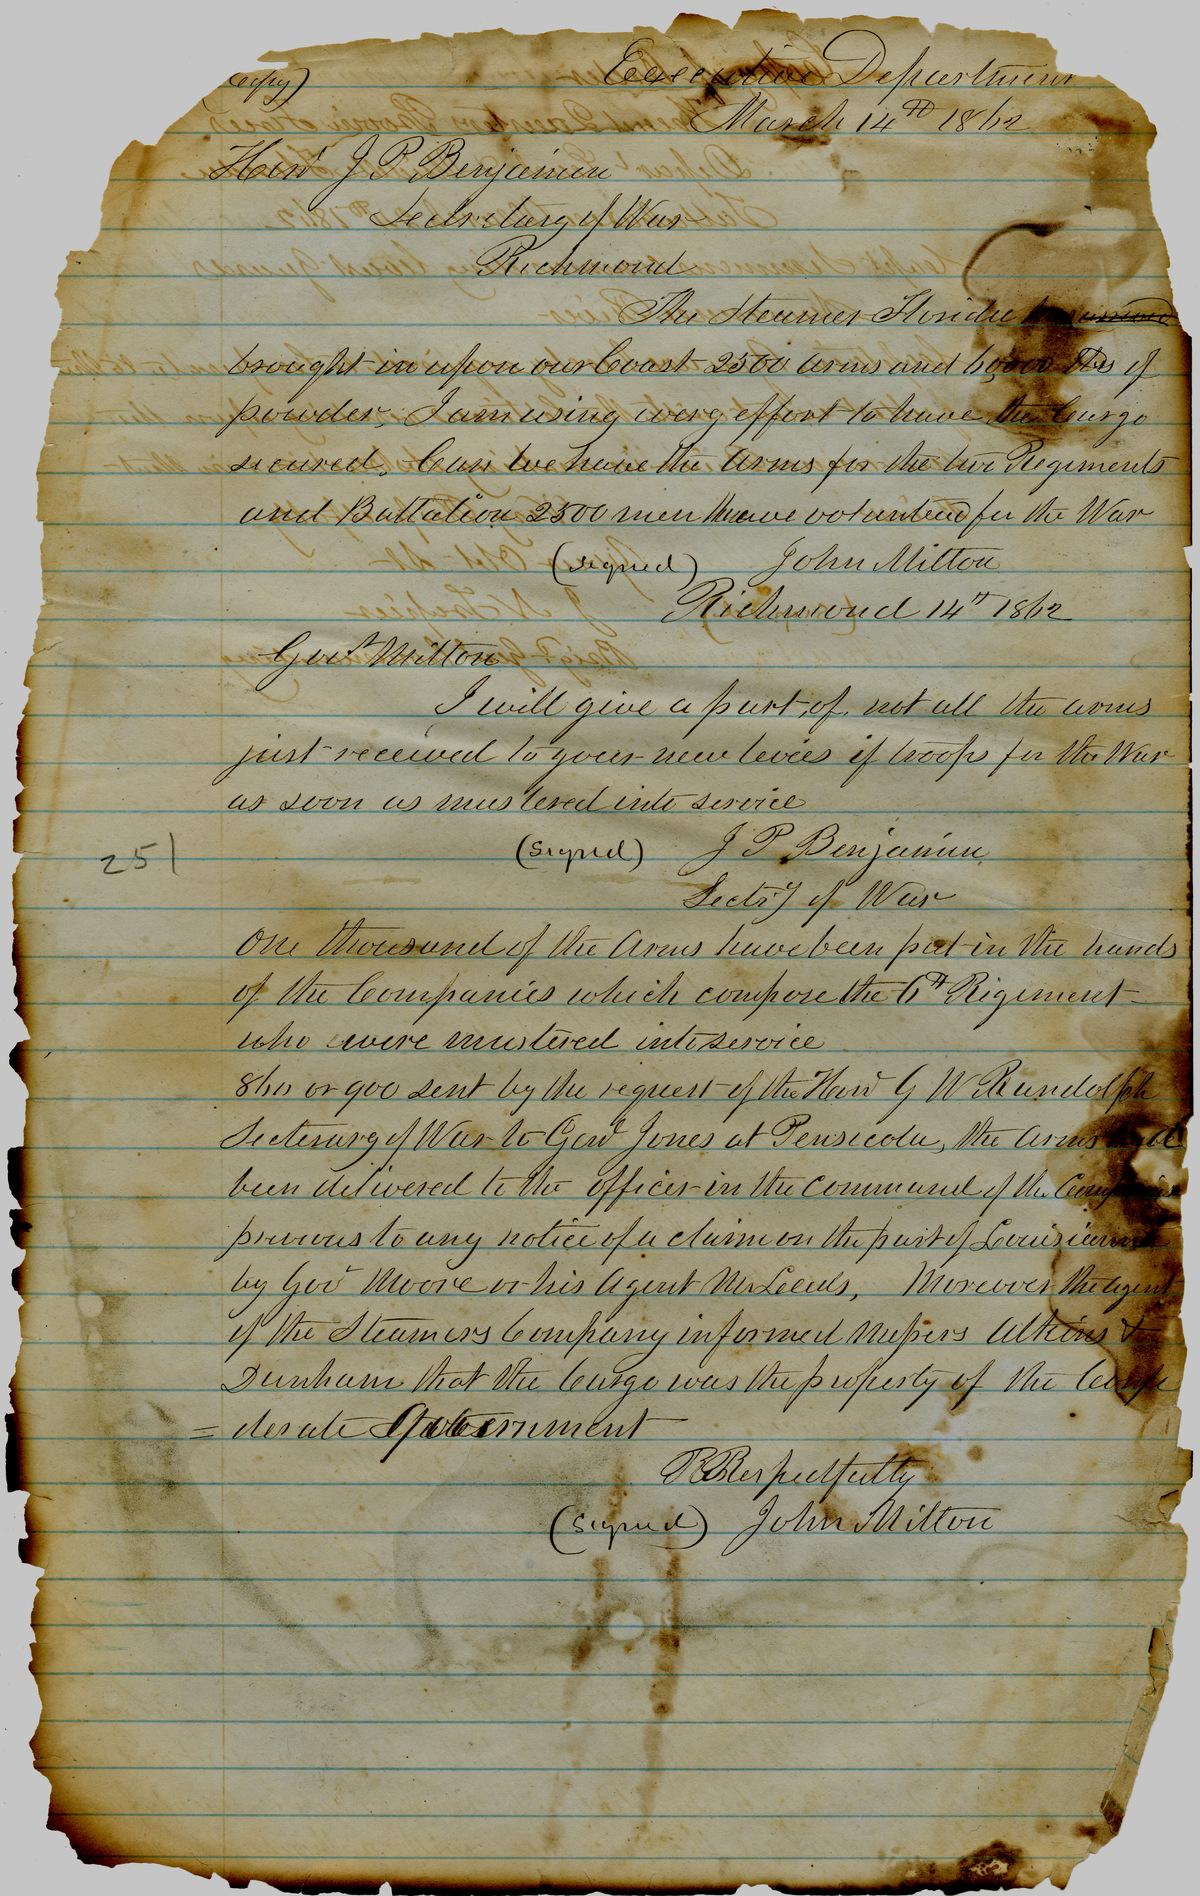 (Copy) Executive Department
March 14th 1862
Honl J P Benjamin
Secretary of War
Richmond
The Steamer Florida has arrived
brought in upon our Coast 2500 arms and 60,000 lbs of
powder, I am using every effort to have the Cargo
secured, Can we have the arms for the two Regiments
and Battalion 2500 men have volunteered for the War
(signed) John Milton
Richmond 14th 1862
Govr Milton
I will give a part, if, not all the arms
just received to your new levies of troops for the War
as soon as mustered into service
251
(signed) J P Benjamin
Secty of War
One thousand of the Arms have been put in the hands
of the Companies which compose the 6th Regiment
who were mustered into service
860 or 900 sent by the request of the Honl G W Randolph
Secterary of War to Genl Jones at Pensicola, the Arms have
been delivered to the officer in the command of the Companies
previous to any notice of a claim on the part of Louisianna
by Govr Moore or his Agent Mr Leeds, Moreover the agent
of the Steamers Company informed Messers Atkins &
Dunham that the Cargo was the property of the Confe
= derate Government
R Respectfully
(signed) John Milton